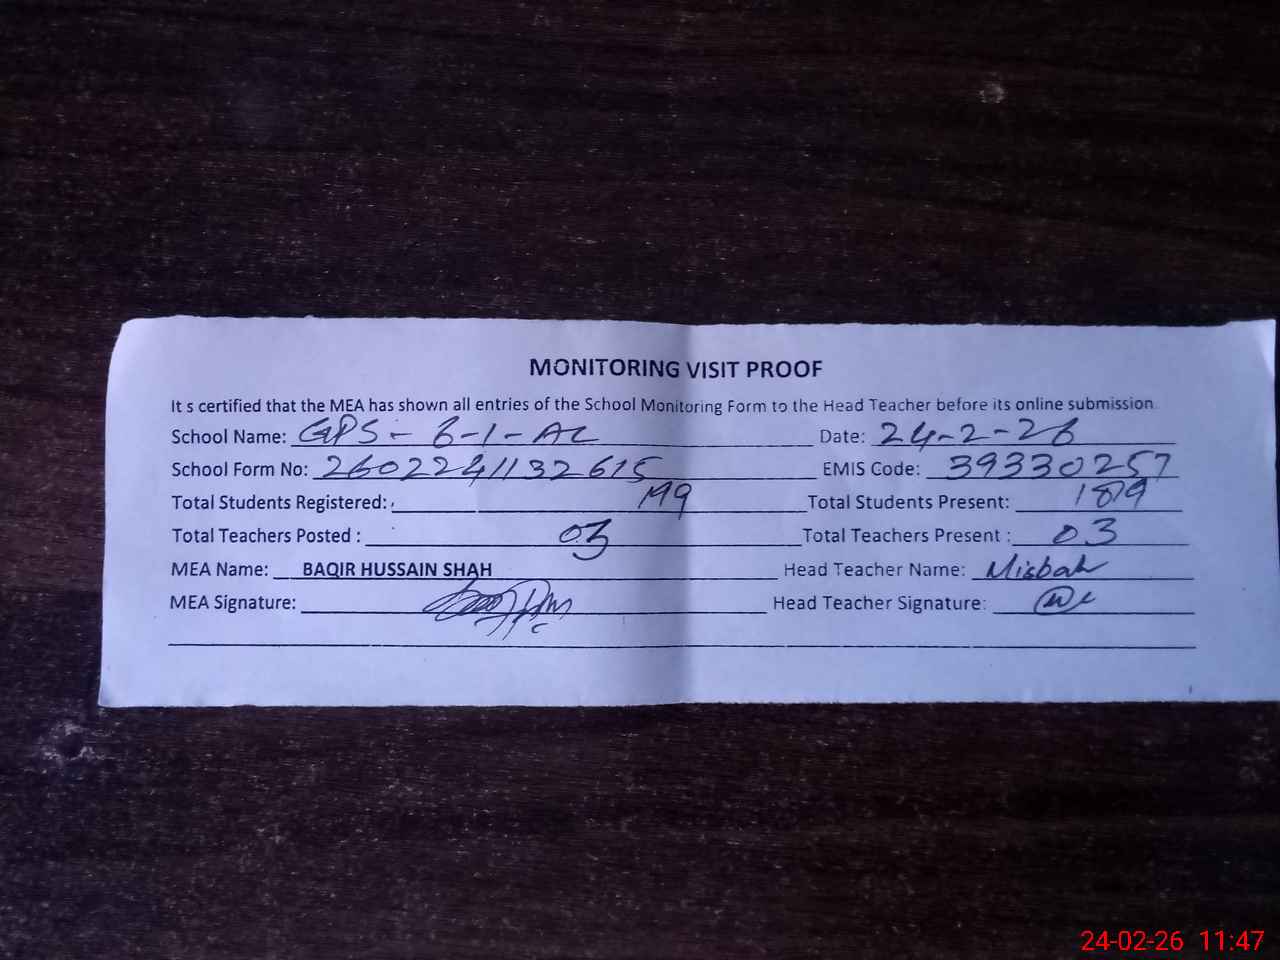 MONITORING VISIT PROOF
It s certified that the MEA has shown all entries of the School Monitoring Form to the Head Teacher before its online submission.
School Name: GPS - 6-1-AL Date: 24-2-26
School Form No: 2602241132615 EMIS Code: 39330257
Total Students Registered: 199 Total Students Present:
Total Teachers Posted : 03 Total Teachers Present : 03
MEA Name: BAQIR HUSSAIN SHAH Head Teacher Name: Misbah
MEA Signature: Head Teacher Signature:
24-02-26 11:47